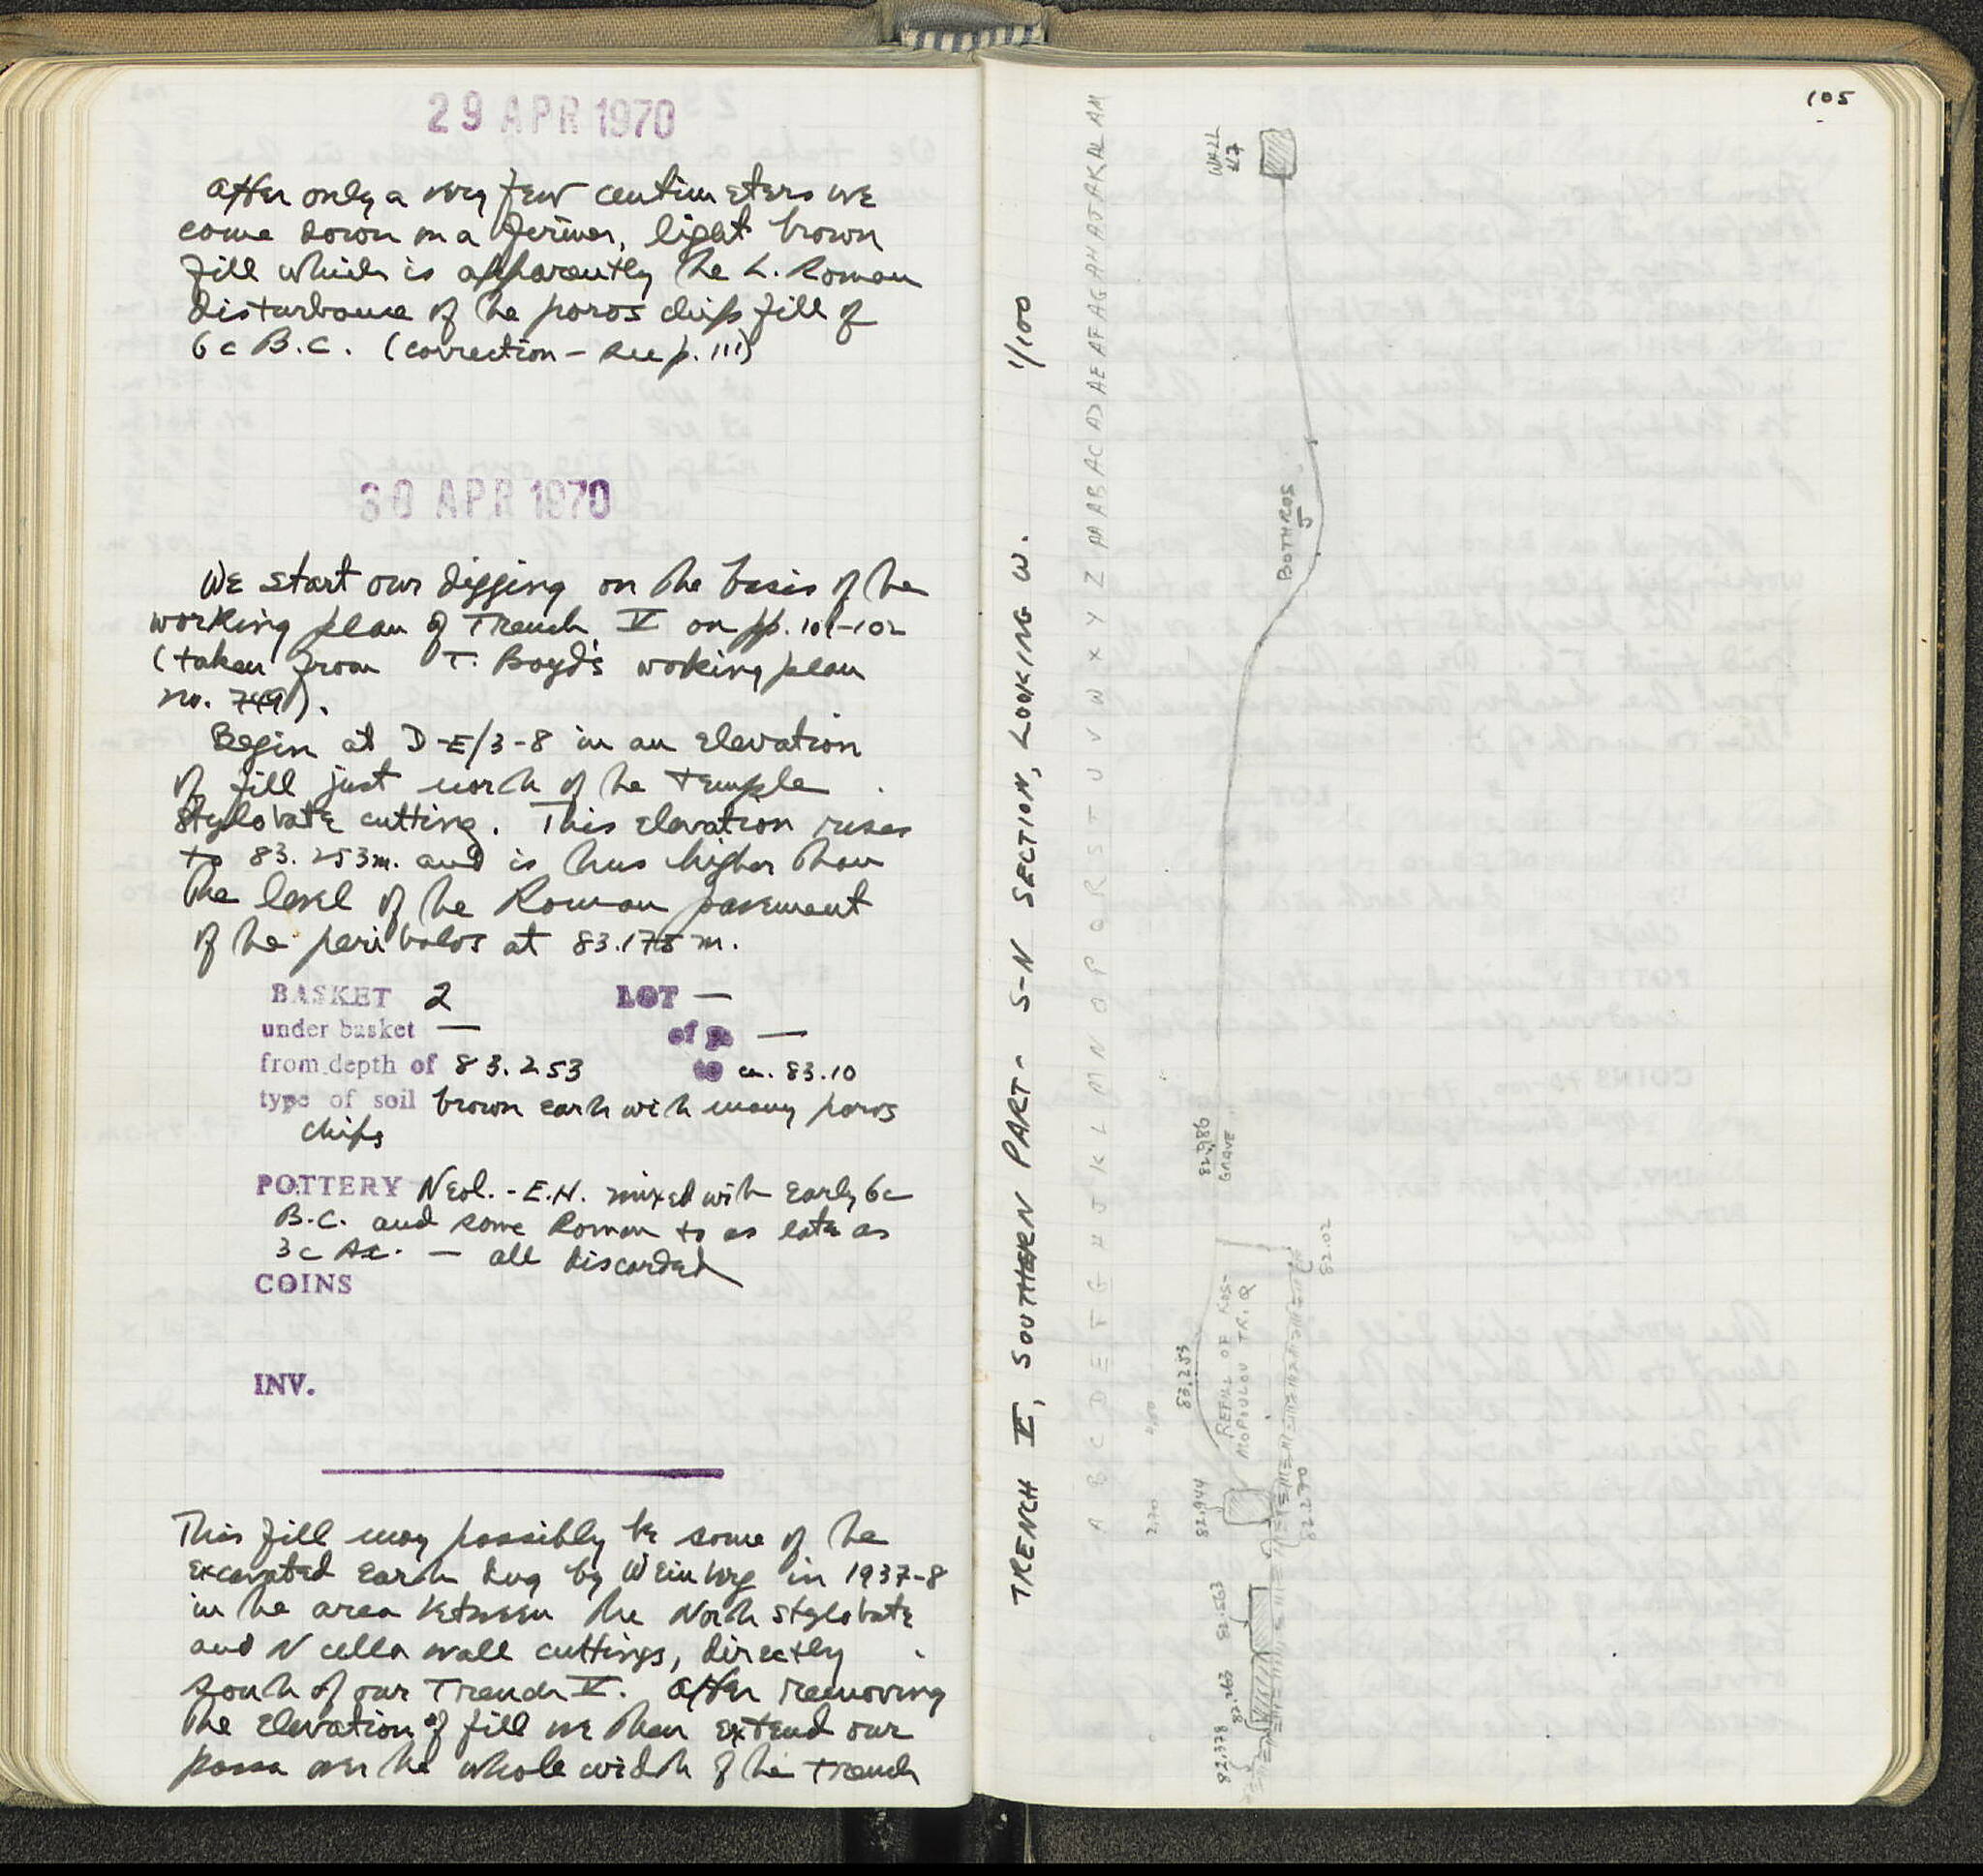 29 APR 1970
After only a very few centimeters we
come down on a firmer, light brown
fill which is apparently the L. Roman
disturbance of the poros chips fill of
6c B.C. (correction - see p. 111)
30 APR 1970
We start our digging on the basis of the
working plan of Trench V on pp. 101-102
(taken from T. Boyd's working plan
no. 749).
Begin at D-E/3-8 in an elevation
of fill just north of the temple
stylobate cutting. This elevation rises
to 83.253m. and is thus higher than
the level of the Roman pavement
of the peribolos at 83.178 m.
BASKET 2 LOT —
under basket — of p. —
from depth of 83.253 to ca. 83.10
type of soil brown earth with many poros
chips
POTTERY Neol. - E.H. mixed with early 6c
B.C. and some Roman to as late as
3c AC. — all discarded
COINS
INV.
This fill may possibly be some of the
excavated earth dug by Weinberg in 1937-8
in the area between the North stylobate
and N cella wall cuttings, directly
south of our Trench V. After removing
the elevation of fill we then extend our
passa over the whole width of the trench
105
TRENCH V, SOUTHERN PART - S-N SECTION, LOOKING W. 1/100
A B C D E F G H J K L M N O P Q R S T U V W X Y Z AA AB AC AD AE AF AG AH AJ AK AL AM
WALL
47
BOTHROS
5
82.986
GRAVE
82.02
REFILL OF KOS-
MOPOULOU TR. Q
83.253
82.944
82.290
82.563
82.263
82.378
2.70
0